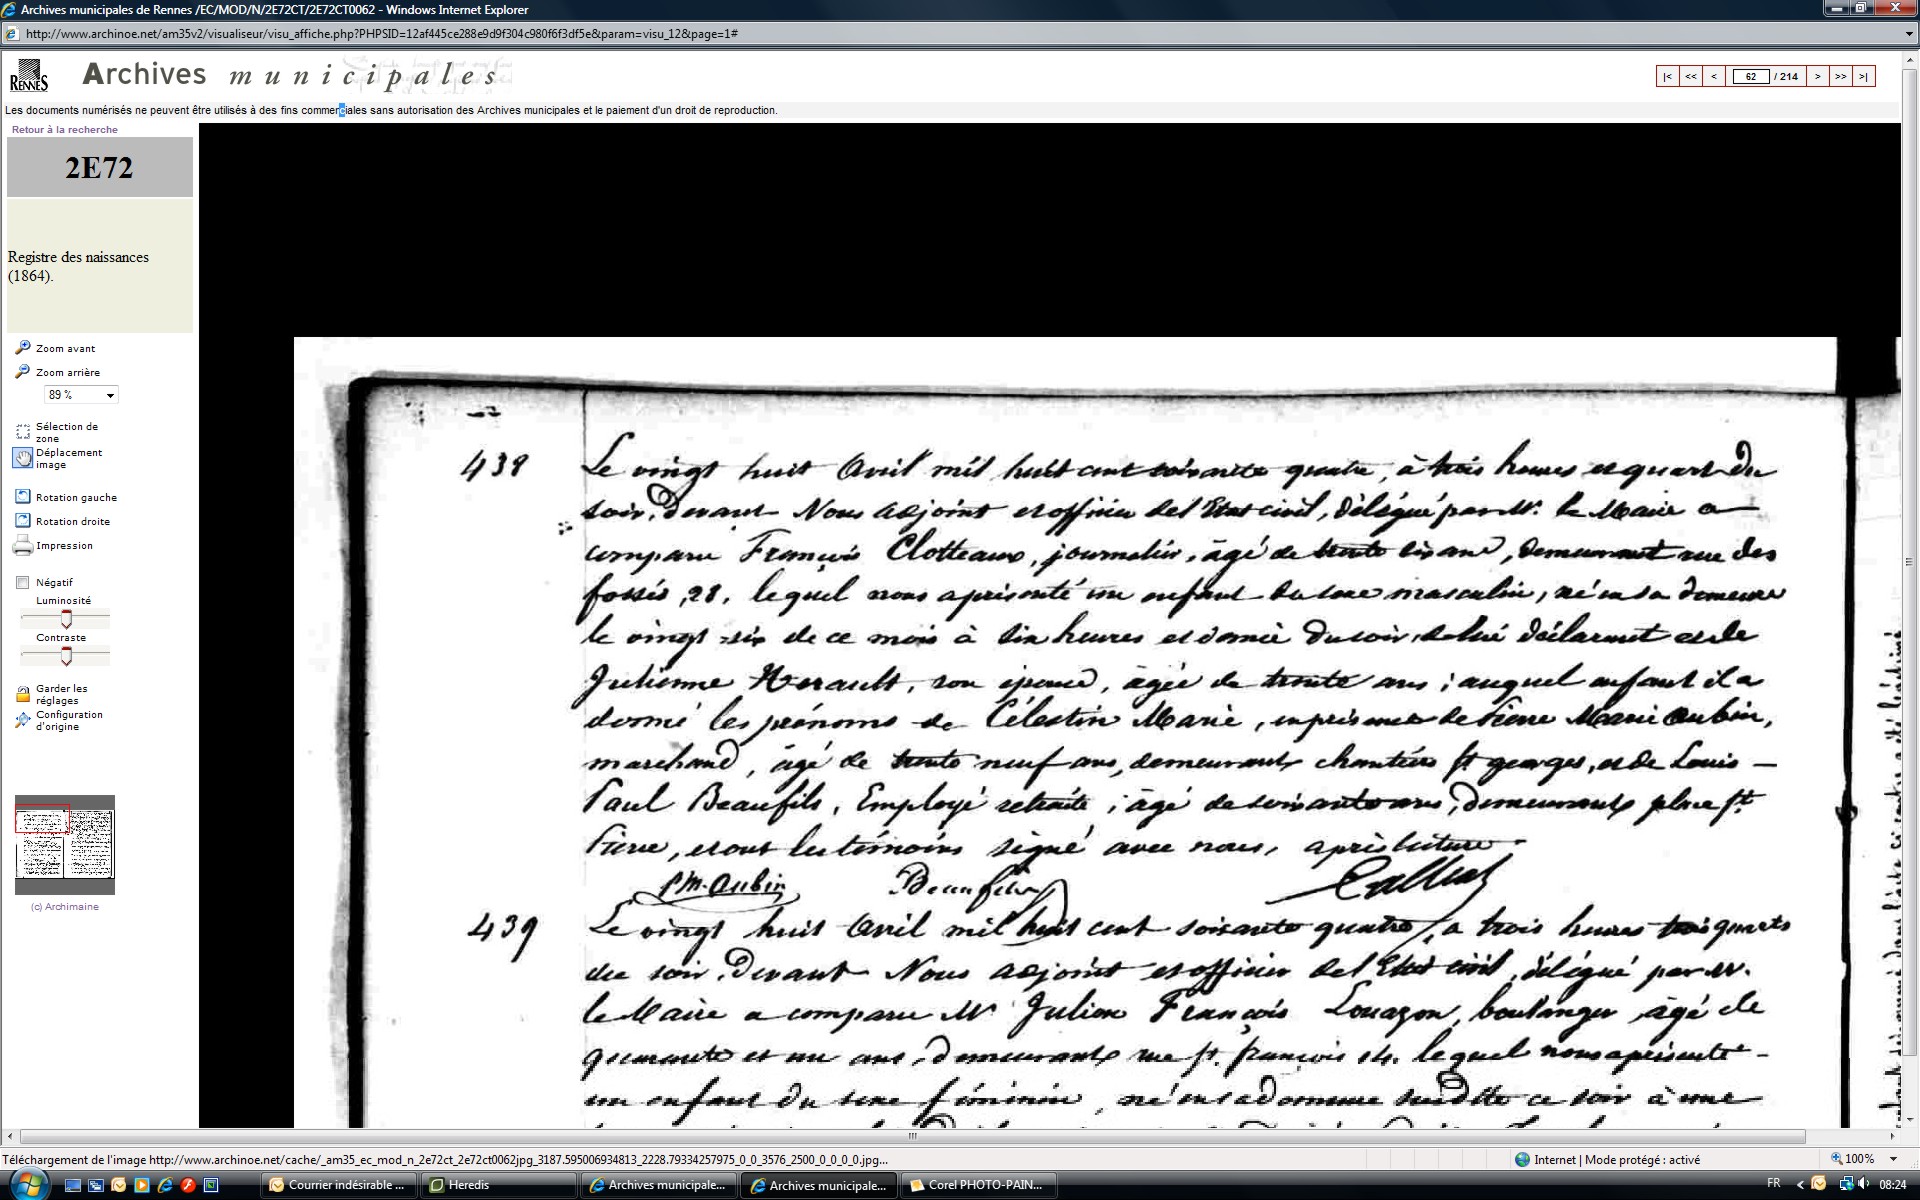 Archives municipales de Rennes /EC/MOD/N/2E72CT/2E72CT0062 - Windows Internet Explorer
http://www.archinoe.net/am35v2/visualiseur/visu_affiche.php?PHPSID=12af445ce288e9d9f304c980f6f3df5e&param=visu_12&page=1#
RENNES
Archives municipales
|< << < 62 / 214 > >> >|
Les documents numérisés ne peuvent être utilisés à des fins commerciales sans autorisation des Archives municipales et le paiement d'un droit de reproduction.
Retour à la recherche
2E72
Registre des naissances
(1864).
Zoom avant
Zoom arrière
89 %
Sélection de
zone
Déplacement
image
Rotation gauche
Rotation droite
Impression
Négatif
Luminosité
Contraste
Garder les
réglages
Configuration
d'origine
(c) Archimaine
438 Le vingt huit Avril mil huit cent soixante quatre, à trois heures et quart du
soir, Devant Nous adjoint et officier de l'Etat civil, délégué par Mr. le Maire a
comparu François Clotteaux, journalier, âgé de trente six ans, demeurant rue des
fossés, 28, lequel nous a présenté un enfant du sexe masculin, né en sa demeure
le vingt-six de ce mois à six heures et demie du soir, de lui déclarant et de
Julienne Herault, son épouse, âgée de trente ans; auquel enfant il a
donné les prénoms de Célestin Marie, en présence de Pierre Marie Aubin,
marchand, âgé de trente neuf ans, demeurant chantiers St georges, et de Louis –
Paul Beaufils, Employé retraité, âgé de soixante ans, demeurant place St.
Pierre, et ont les témoins signé avec nous, après lecture.
P.M. Aubin Beaufils
439 Le vingt huit Avril mil huit cent soixante quatre, a trois heures trois quarts
du soir, Devant Nous adjoint et officier de l'Etat civil, délégué par M.
le Maire a comparu Mr Julien François Louazon, boulanger, âgé de
quarante et un ans, demeurant rue St. françois 14, lequel nous a présenté –
un enfant du sexe féminin, né en sa demeure susdite ce soir à une
Téléchargement de l'image http://www.archinoe.net/cache/_am35_ec_mod_n_2e72ct_2e72ct0062jpg_3187.595006934813_2228.79334257975_0_0_3576_2500_0_0_0_0.jpg...
Internet | Mode protégé : activé
100%
Courrier indésirable ...
Heredis
Archives municipale...
Archives municipale...
Corel PHOTO-PAIN...
FR
08:24